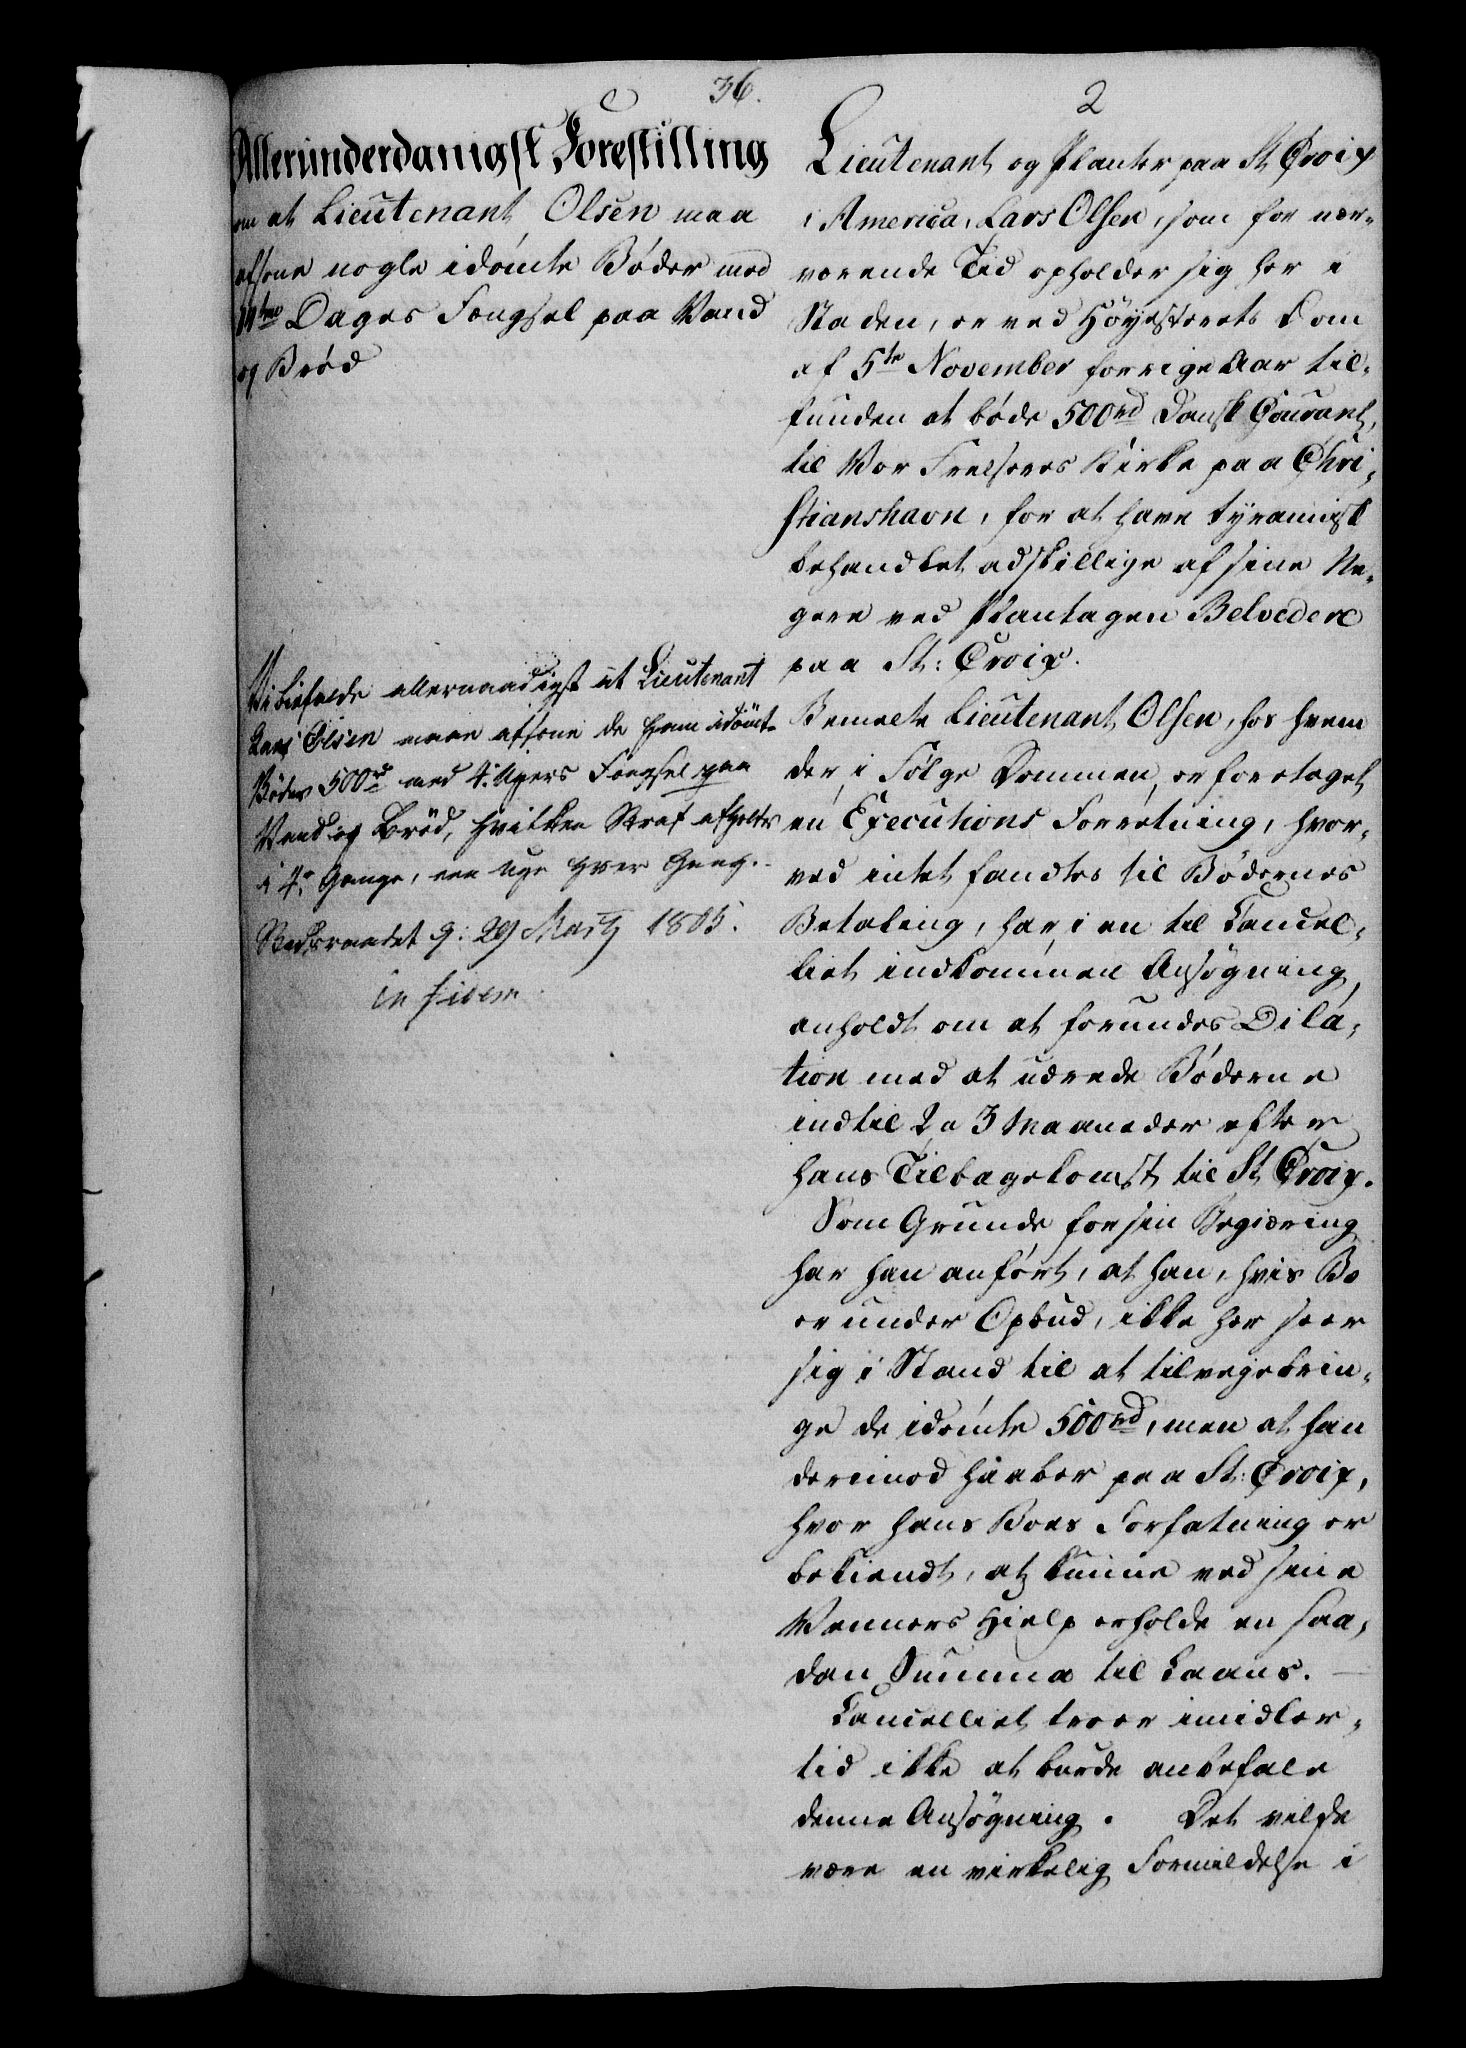 36.
2
Allerunderdanigst Forestilling
om at Lieutenant Olsen maa
afsone nogle idömte Böder med
Dages Fængsel paa Vand
og Bröd
Vi biefalde allernaadigst at Lieutenant
Lars Olsen maae afsone de ham idömte
Böder 500rd med 4 Ugers Fængsel paa
Vand og Bröd, hvilken Straf afholdes
i 4re Gange, een Uge hver Gang.-
d: 29 Martz 1805.
in fidem.
Lieutenant og Planter paa St Croix
i America, Lars Olsen, som for nær-
værende Tid opholder sig her i
Staden, er ved Höyesterets Dom
af 5te November forrige Aar til-
funden at böde 500rd Dansk Courant,
til Vor Frelseres Kirke paa Chri-
stianshavn, for at have tyrannisk
behandlet adskillige af sine Ne-
gere ved Plantagen Belvedere
paa St: Croix.
Bemelte Lieutenant Olsen, hos hvem
der, i Fölge Dommen, er foretaget
en Executions Forretning, hvor-
ved intet fandtes til Bödernes
Betaling, har, i en til Cancel-
liet indkommen Ansögning,
anholdt om at forundes Dila-
tion med at udrede Böderne
indtil 2 a 3 Maaneder efter
hans Tilbagekomst til St Croix.
Som Grunde for sin Begiæring
har han anfört, at han, hvis Bo
er under Opbud, ikke her seer
sig i Stand til at tilvejebrin-
ge de idömte 500rd, men at han
derimod haaber paa St: Croix,
hvor hans Boes Forfatning er
bekiendt, at kunne ved sine
Venners Hielp erholde en saa-
dan Summa til Laans.
Cancelliet troer imidler-
tid ikke at burde anbefale
denne Ansögning. Det vilde
være en virkelig Formildelse i